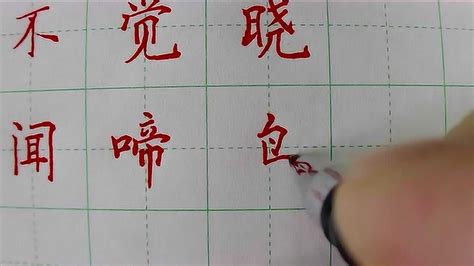 不觉晓
闻啼